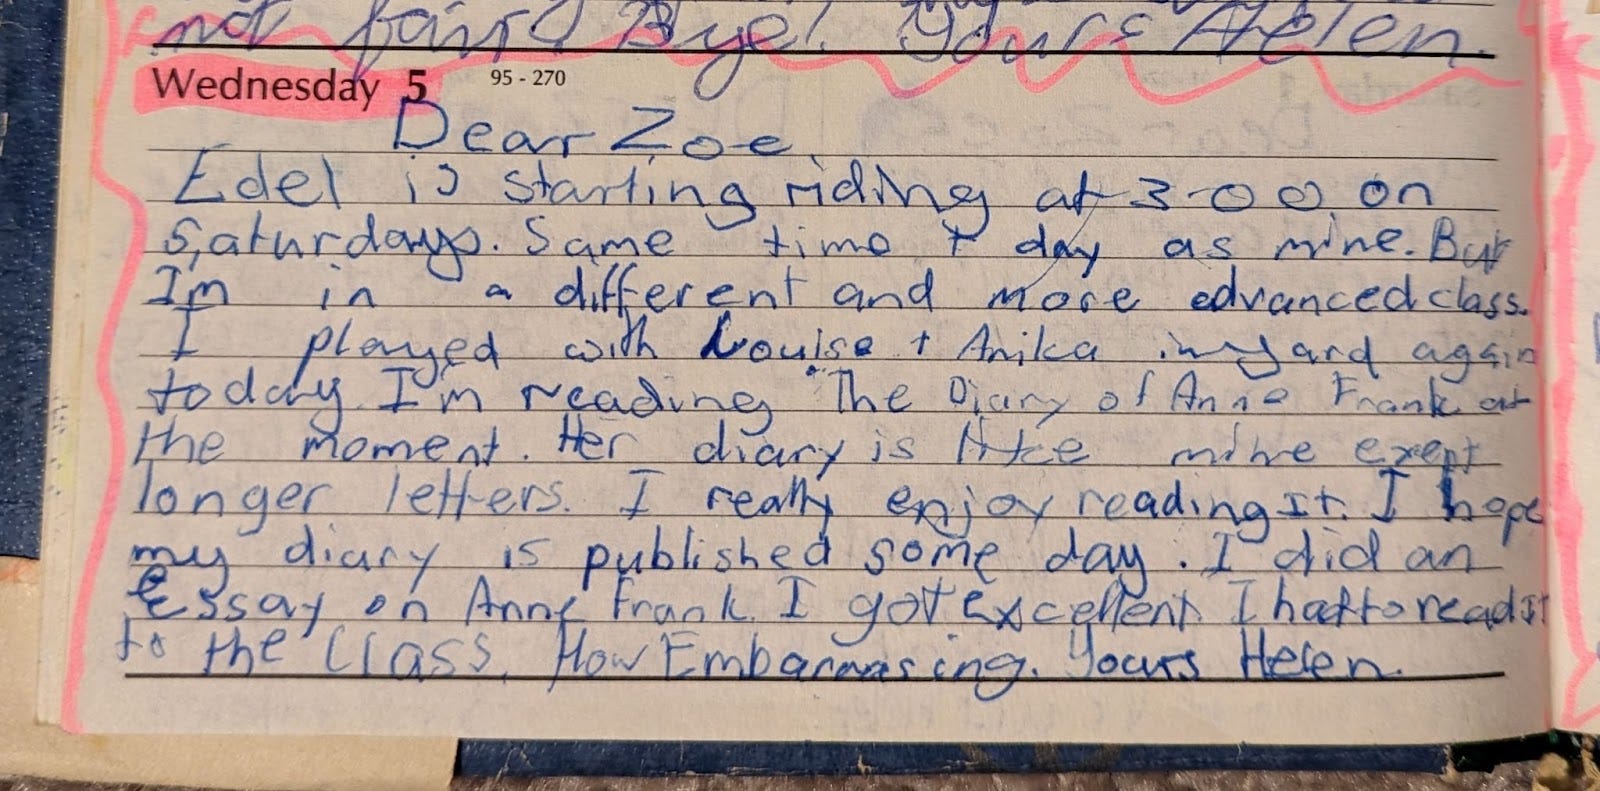 not fair! Bye! Yours Helen.
Wednesday 5 95 - 270
Dear Zoe,
Edel is starting riding at 3-00 on
Saturdays. Same time + day as mine. But
Im in a different and more advanced class.
I played with Louise + Anika in yard again
today. I'm reading "The Diary of Anne Frank at
the moment. Her diary is like mine exept
longer letters. I really enjoy reading It. I hope
my diary is published some day. I did an
Essay on Anne Frank. I got excellent. I hatto read it
to the Class. How Embarrassing. Yours Helen.